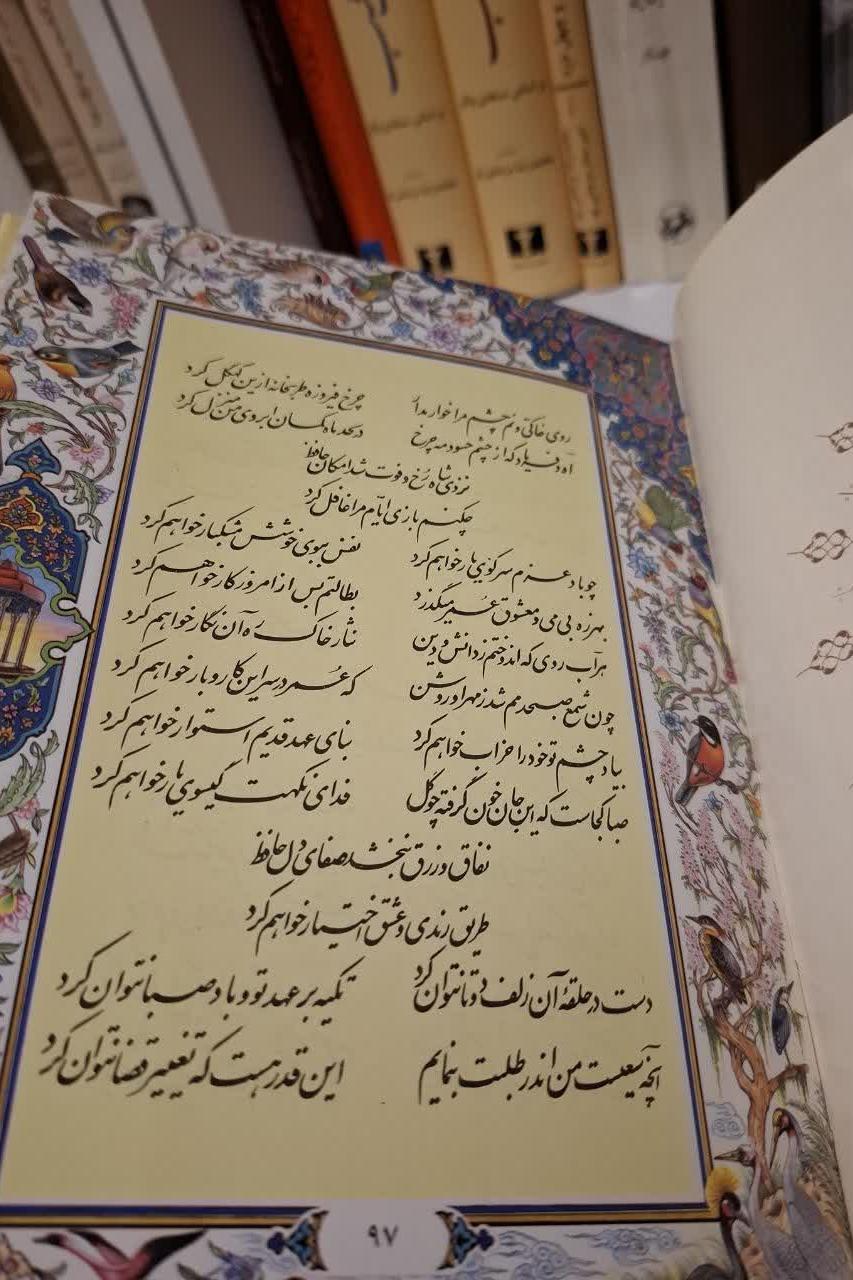 روی خاکی و نم چشم مرا خوار مدار چرخ فیروزه طربخانه ازین کهگل کرد
آه و فریاد که از چشم حسود مه چرخ در لحد ماه کمان ابروی من منزل کرد
نزدی شاه رخ و فوت شد امکان حافظ
چکنم بازی ایام مرا غافل کرد
چو باد عزم سر کوی یار خواهم کرد نفس ببوی خوشش مشکبار خواهم کرد
بهرزه بی می و معشوق عمر میگذرد بطالتم بس از امروز کار خواهم کرد
هر آب روی که اندوختم ز دانش و دین نثار خاک ره آن نگار خواهم کرد
چون شمع صبحدمم شد ز مهر او روشن که عمر در سر این کار و بار خواهم کرد
بیاد چشم تو خود را خراب خواهم کرد بنای عهد قدیم استوار خواهم کرد
صبا کجاست که این جان خون گرفته چو گل فدای نکهت گیسوی یار خواهم کرد
نفاق و زرق نبخشد صفای دل حافظ
طریق رندی و عشق اختیار خواهم کرد
دست در حلقهٔ آن زلف دوتا نتوان کرد تکیه بر عهد تو و باد صبا نتوان کرد
آنچه سعیست من اندر طلبت بنمایم این قدر هست که تغییر قضا نتوان کرد
۹۷